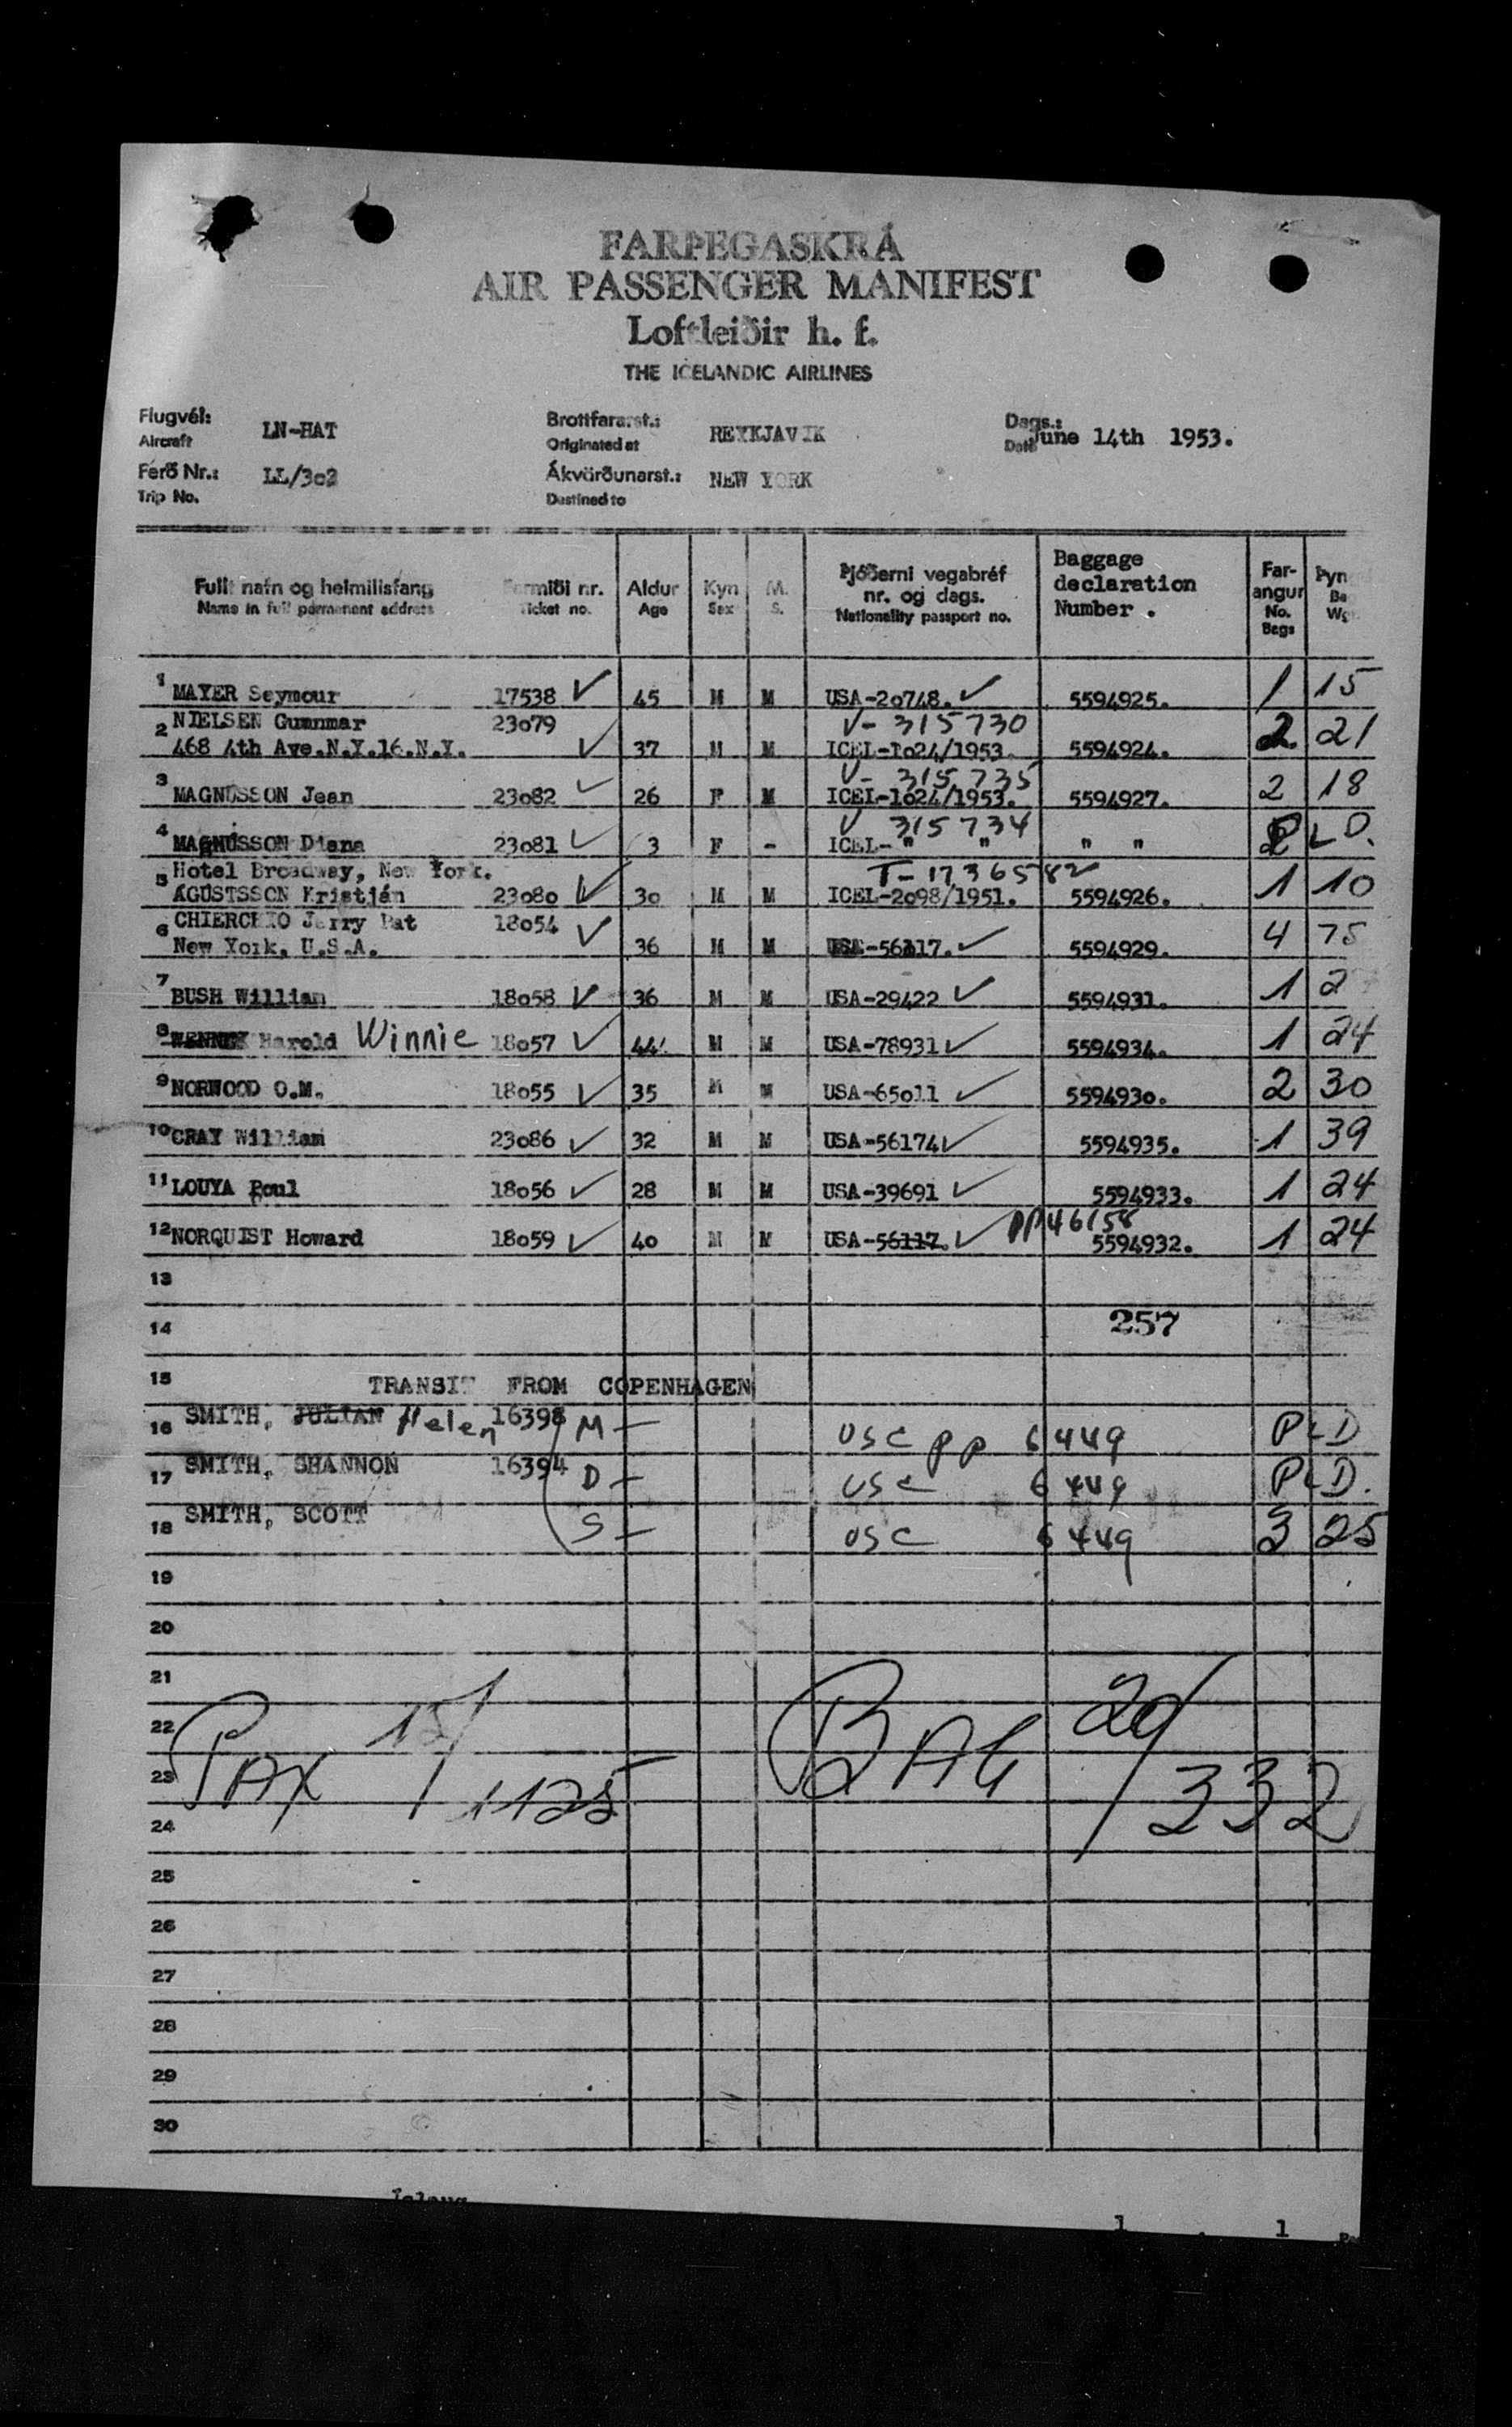 FARÞEGASKRÁ
AIR PASSENGER MANIFEST
Loftleiðir h. f.
THE ICELANDIC AIRLINES
Flugvél: LN-HAT Brottfararst.: REYKJAVIK Dags.:
Aircraft Originated at Date June 14th 1953.
Ferð Nr.: LL/3o2 Ákvörðunarst.: NEW YORK
Trip No. Destined to
Fullt nafn og heimilisfang Farmiði nr. Aldur Kyn M. Þjóðerni vegabréf nr. og dags. Baggage declaration Number . Far-angur
Name in full permanent address Ticket no. Age Sex S. Nationality passport no. No. Bags
1 MAYER Seymour 17538 ✓ 45 M M USA-2o748. ✓ 5594925. 1 15
2 NIELSEN Gumnmar 23o79 V- 315730 2 21
468 4th Ave.N.Y.16.N.Y. ✓ 37 M M ICEL-1o24/1953. 5594924.
V- 315735
3 MAGNUSSON Jean 23o82 ✓ 26 F M ICEL-1o24/1953. 5594927. 2 18
V 315734
4 MAGNUSSON Diana 23o81 ✓ 3 F - ICEL- " " " "
Hotel Broadway, New York. T-1736582
5 ÁGÚSTSSON Kristján 23o8o ✓ 3o M M ICEL-2o98/1951. 5594926. 1 10
6 CHIERCHIO Jerry Pat 18o54 ✓ 4 75
New York, U.S.A. 36 M M USA-56117. ✓ 5594929.
7 BUSH William 18o58 ✓ 36 M M USA-29422 ✓ 5594931. 1 2
8 Harold Winnie 18o57 ✓ 44. M M USA-78931 ✓ 5594934. 1 24
9 NORWOOD O.M. 18o55 ✓ 35 M M USA-65o11 ✓ 559493o. 2 30
10 CRAY William 23o86 ✓ 32 M M USA-56174 ✓ 5594935. 1 39
11 LOUYA Poul 18o56 ✓ 28 M M USA-39691 ✓ 5594933. 1 24
12 NORQUIST Howard 18o59 ✓ 4o M M USA-56117. ✓ PP 46158 5594932. 1 24
13
14 257
15 TRANSIT FROM COPENHAGEN
16 SMITH, JULIAN Helen 16398 M - USC PP 6449 PLD
17 SMITH, SHANNON 16394 D - USC 6449 PLD.
18 SMITH, SCOTT S - USC 6449 3 25
19
20
21
22
23 PAX 15/1125 BAG 20/332
24
25
26
27
28
29
30
1 1